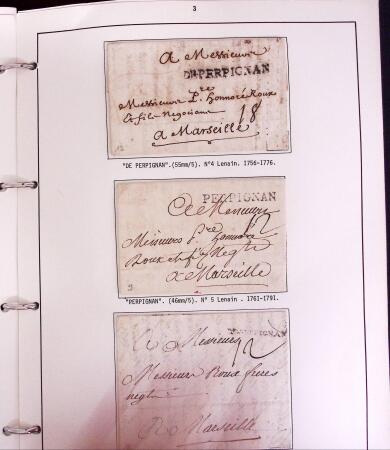 3
A Messieurs
DE PERPIGNAN
Messieurs P.re honnoré Roux
et fils Negociant 18
a Marseille
"DE PERPIGNAN".(55mm/5). N°4 Lenain. 1756-1776.
PERPIGNAN
A Messieurs
12
Messieurs P.re honnoré
Roux et fils Negts
a Marseille
"PERPIGNAN". (46mm/5). N° 5 Lenain . 1761-1791.
PERPIGNAN
A Messieurs 12
Messieurs Roux freres
negts
A Marseille